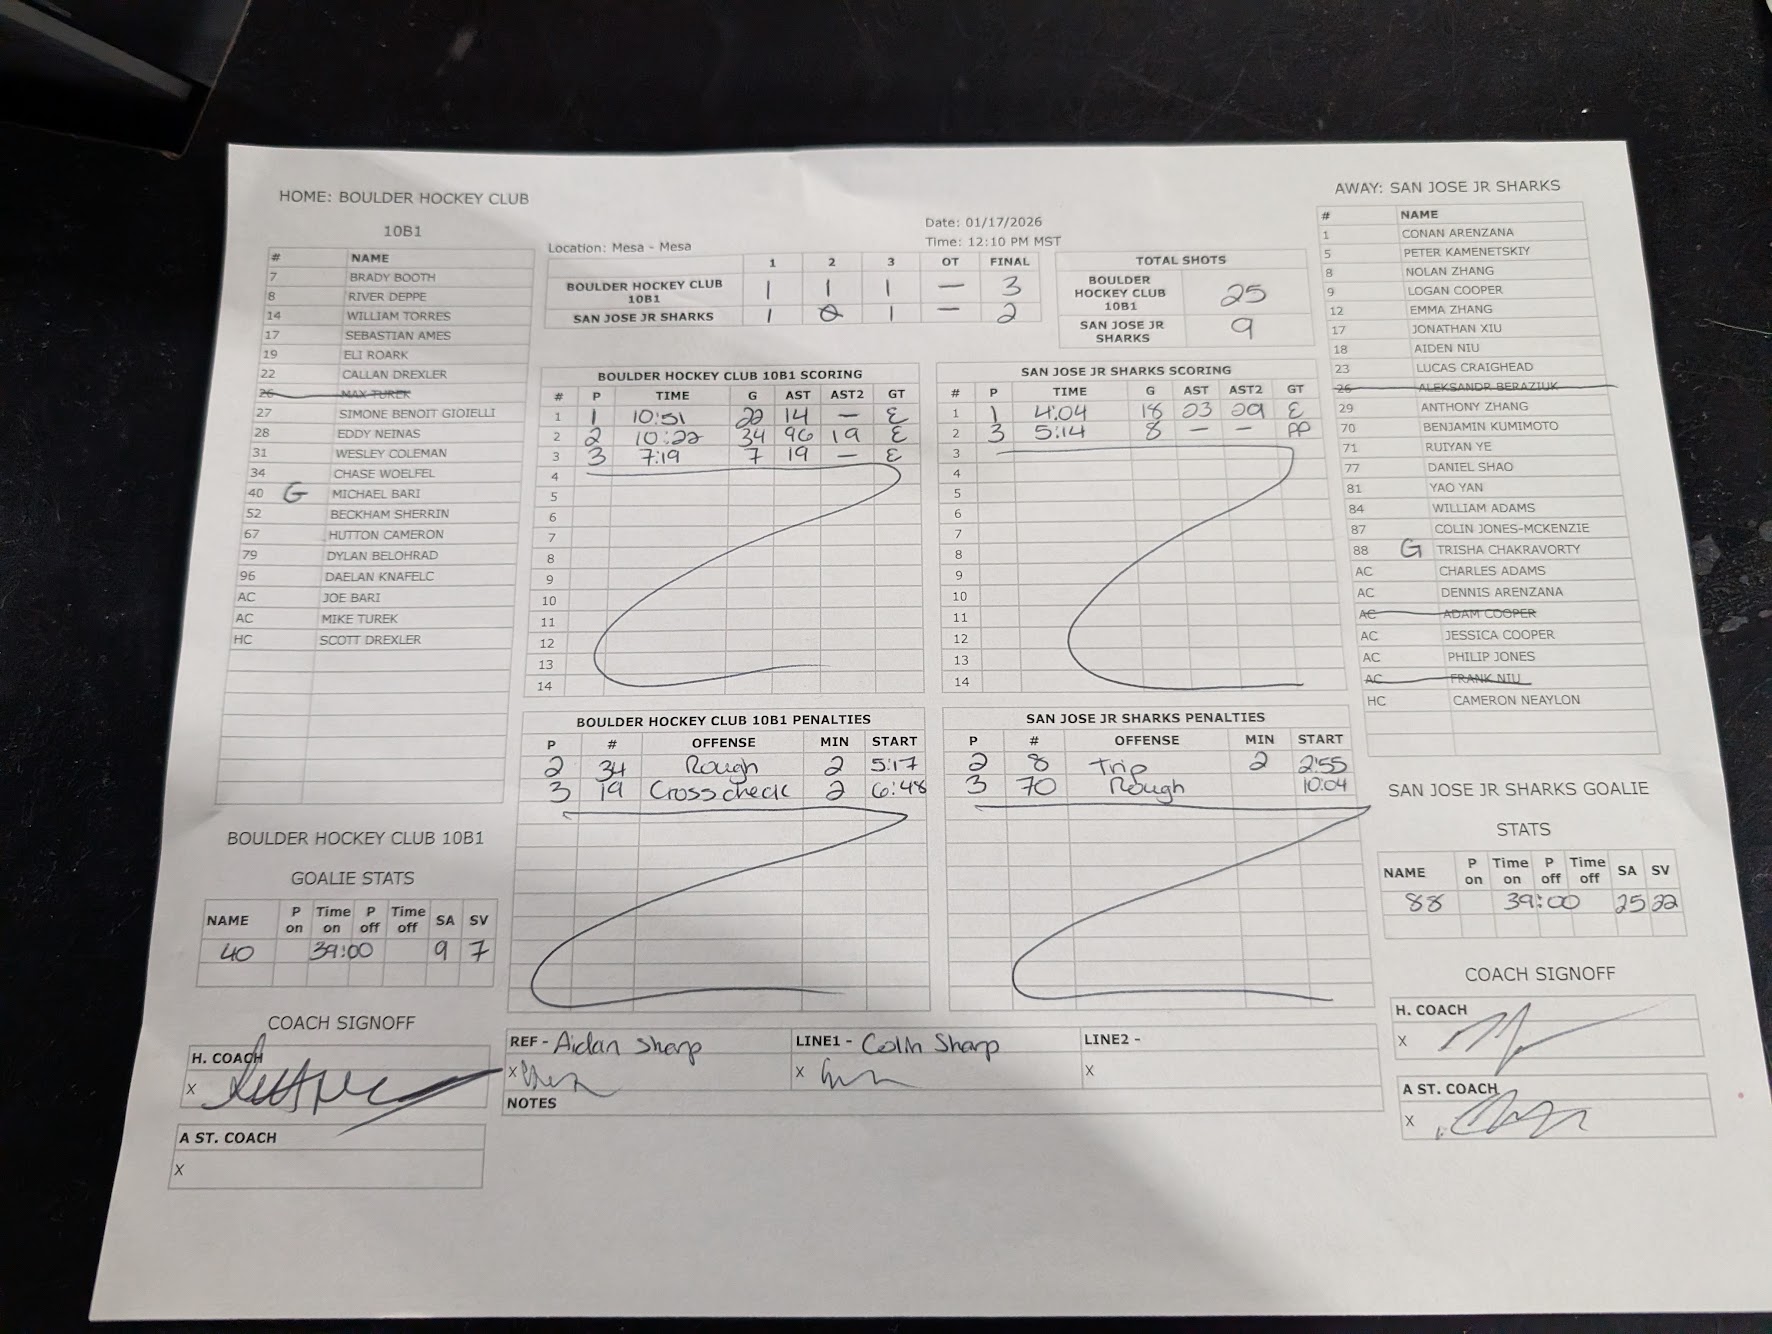 HOME: BOULDER HOCKEY CLUB
10B1
# NAME
7 BRADY BOOTH
8 RIVER DEPPE
14 WILLIAM TORRES
17 SEBASTIAN AMES
19 ELI ROARK
22 CALLAN DREXLER
26 MAX TUREK
27 SIMONE BENOIT GIOIELLI
28 EDDY NEINAS
31 WESLEY COLEMAN
34 CHASE WOELFEL
40 G MICHAEL BARI
52 BECKHAM SHERRIN
67 HUTTON CAMERON
79 DYLAN BELOHRAD
96 DAELAN KNAFELC
AC JOE BARI
AC MIKE TUREK
HC SCOTT DREXLER
BOULDER HOCKEY CLUB 10B1
GOALIE STATS
NAME P on Time on P off Time off SA SV
40 39:00 9 7
COACH SIGNOFF
H. COACH
X
A ST. COACH
X
Date: 01/17/2026
Location: Mesa - Mesa
Time: 12:10 PM MST
1 2 3 OT FINAL
BOULDER HOCKEY CLUB 10B1 1 1 1 — 3
SAN JOSE JR SHARKS 1 0 1 — 2
TOTAL SHOTS
BOULDER HOCKEY CLUB 10B1 25
SAN JOSE JR SHARKS 9
BOULDER HOCKEY CLUB 10B1 SCORING
# P TIME G AST AST2 GT
1 1 10:51 22 14 — E
2 2 10:22 34 96 19 E
3 3 7:19 7 19 — E
4
5
6
7
8
9
10
11
12
13
14
SAN JOSE JR SHARKS SCORING
# P TIME G AST AST2 GT
1 1 4:04 18 23 29 E
2 3 5:14 8 — — PP
3
4
5
6
7
8
9
10
11
12
13
14
BOULDER HOCKEY CLUB 10B1 PENALTIES
P # OFFENSE MIN START
2 34 Rough 2 5:17
3 19 Cross check 2 6:48
SAN JOSE JR SHARKS PENALTIES
P # OFFENSE MIN START
2 8 Trip 2 2:55
3 70 Rough 10:04
REF - Aidan Sharp
X
LINE1 - Colin Sharp
X
LINE2 -
X
NOTES
AWAY: SAN JOSE JR SHARKS
# NAME
1 CONAN ARENZANA
5 PETER KAMENETSKIY
8 NOLAN ZHANG
9 LOGAN COOPER
12 EMMA ZHANG
17 JONATHAN XIU
18 AIDEN NIU
23 LUCAS CRAIGHEAD
26 ALEKSANDR BERAZIUK
29 ANTHONY ZHANG
70 BENJAMIN KUMIMOTO
71 RUIYAN YE
77 DANIEL SHAO
81 YAO YAN
84 WILLIAM ADAMS
87 COLIN JONES-MCKENZIE
88 G TRISHA CHAKRAVORTY
AC CHARLES ADAMS
AC DENNIS ARENZANA
AC ADAM COOPER
AC JESSICA COOPER
AC PHILIP JONES
AC FRANK NIU
HC CAMERON NEAYLON
SAN JOSE JR SHARKS GOALIE
STATS
NAME P on Time on P off Time off SA SV
88 39:00 25 22
COACH SIGNOFF
H. COACH
X
A ST. COACH
X